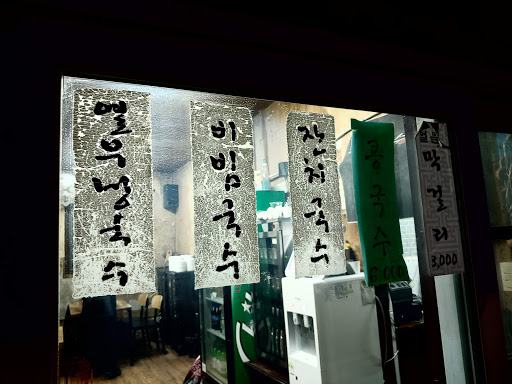 열무냉국수
비빔국수
잔치국수
콩국수
6,000
막걸리
3,000